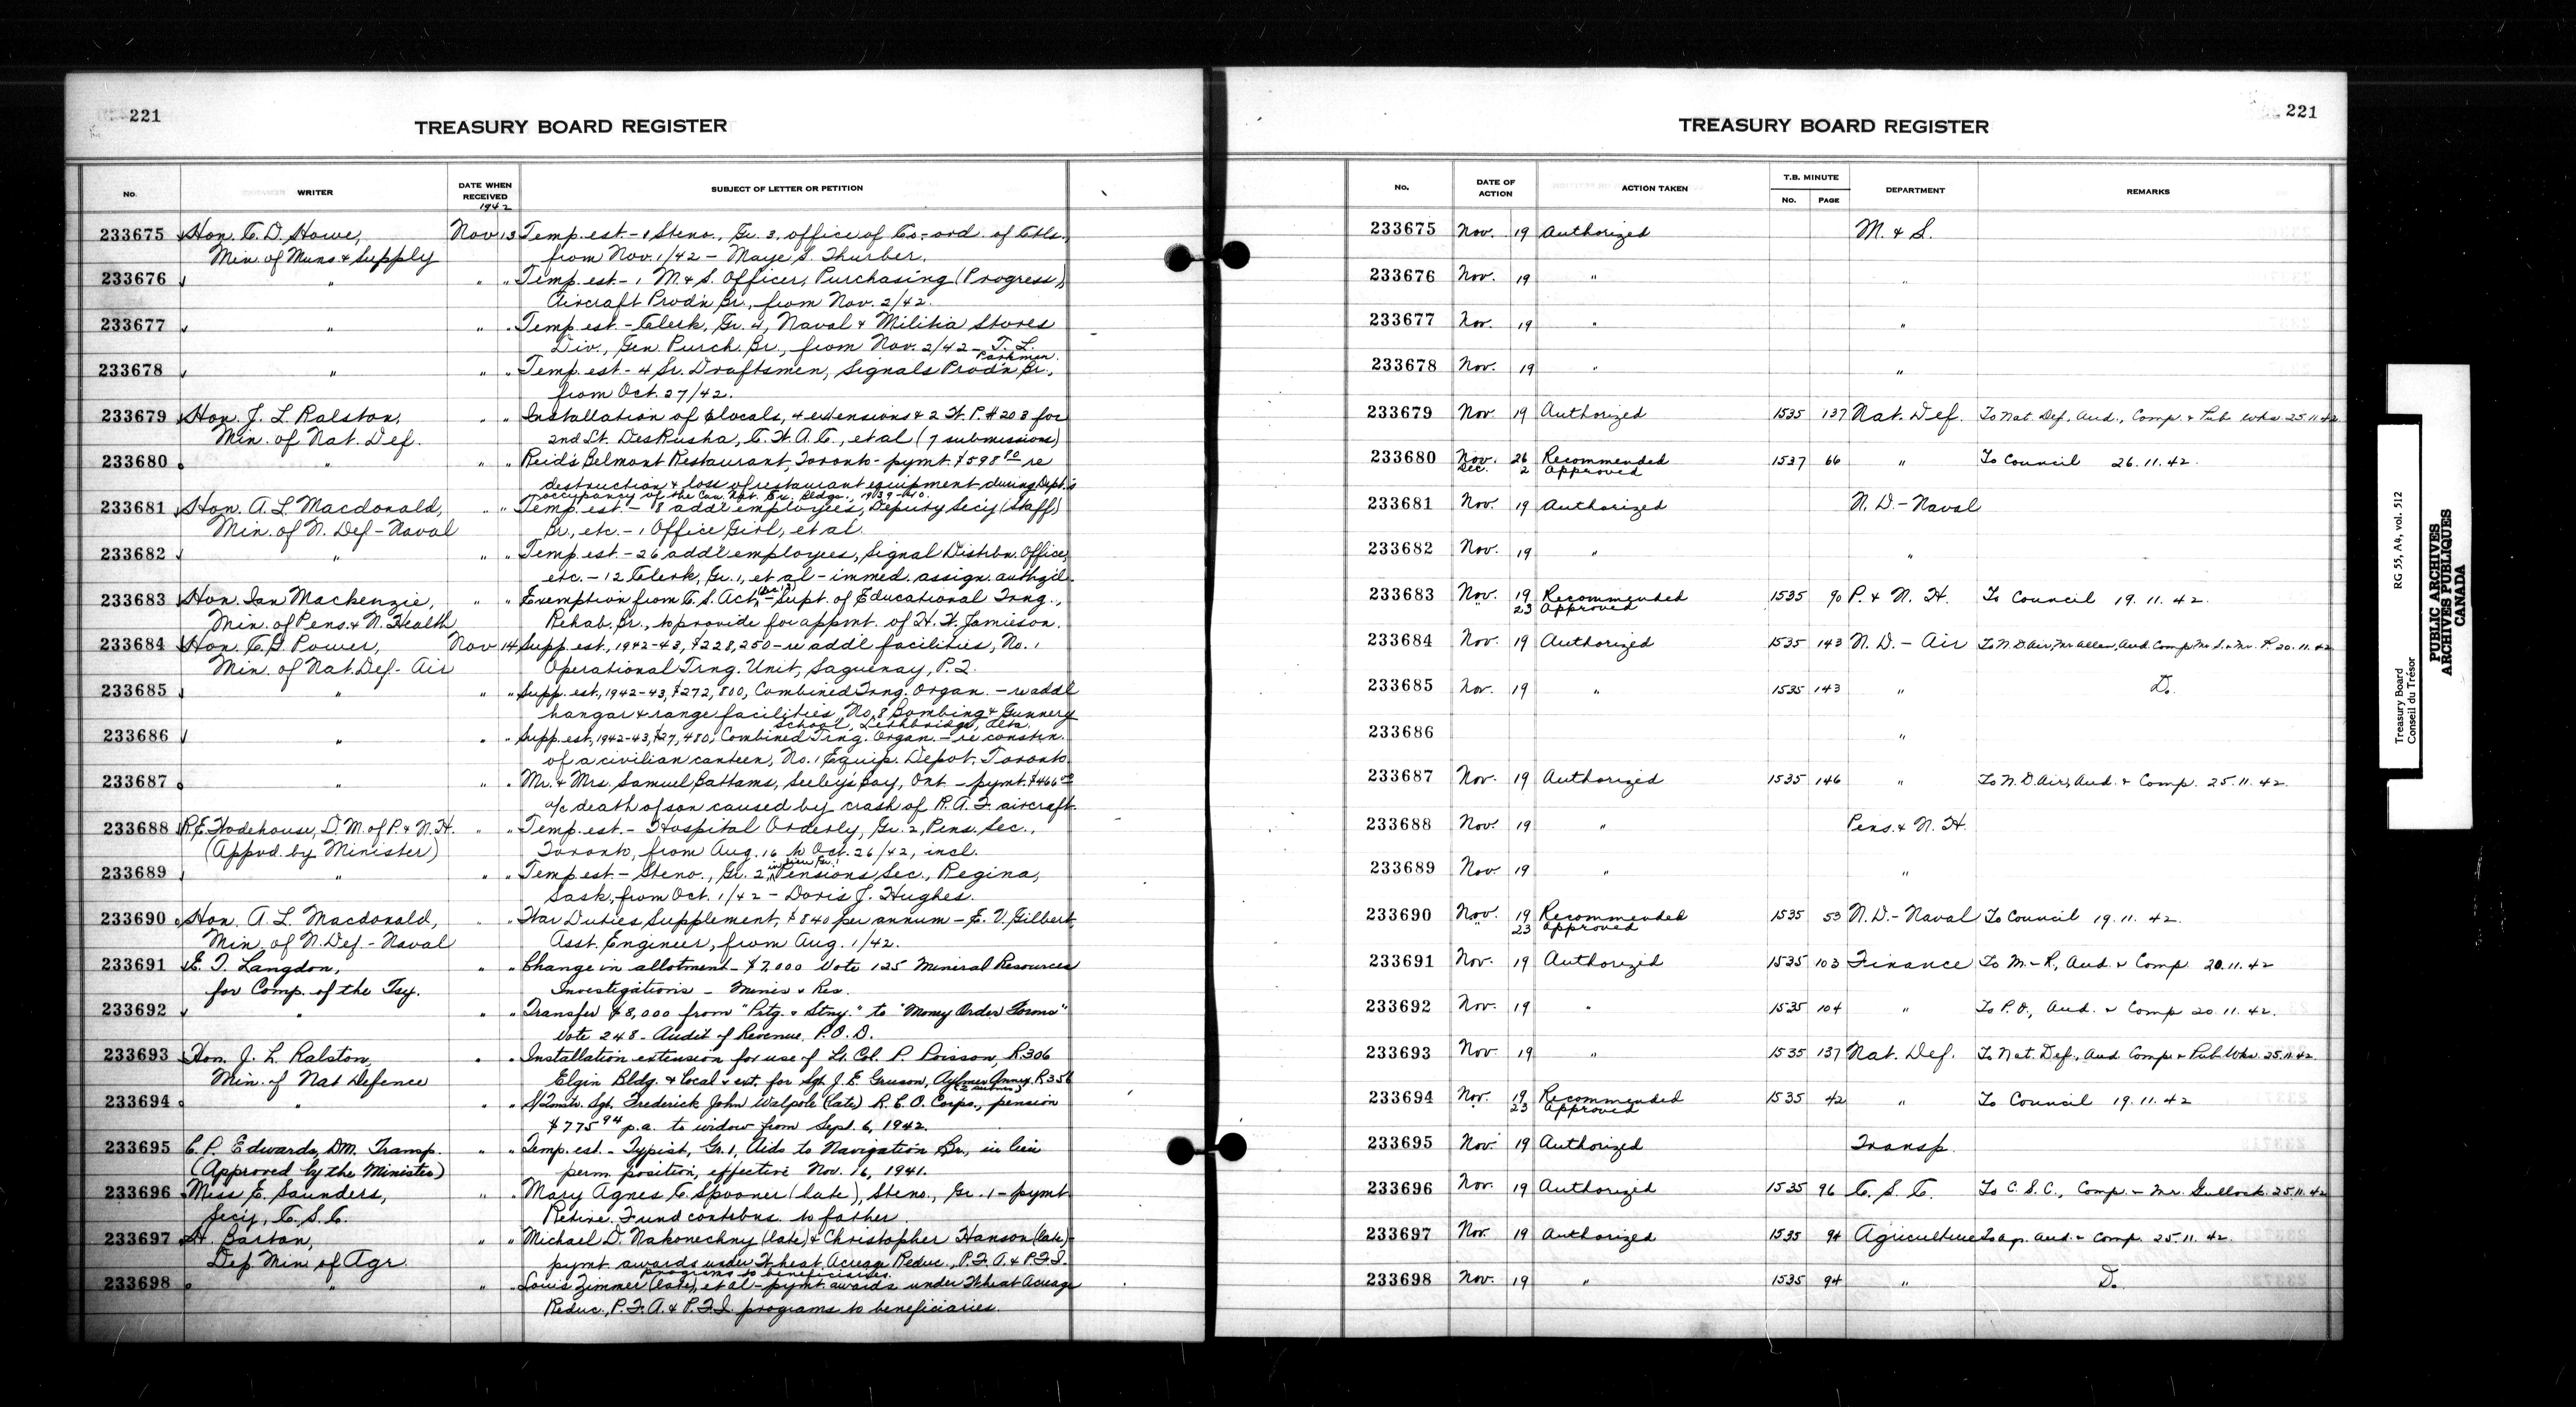 221
TREASURY BOARD REGISTER
No.
WRITER
DATE WHEN RECEIVED
1942
SUBJECT OF LETTER OR PETITION
233675 Hon. C. D. Howe, Nov 13 Temp. est. - 1 Steno., Gr. 3, office of Co-ord. of Ctls.,
Min. of Muns & Supply from Nov. 1/42 - Maye S. Thurber.
233676 " " " Temp. est. - 1 M. & S. Officer, Purchasing (Progress),
Aircraft Prod'n Br., from Nov. 2/42.
233677 " " " Temp. est. - Clerk, Gr. 4, Naval & Militia Stores
Div., Gen. Purch. Br., from Nov. 2/42 - T. L.
Parkman.
233678 " " " Temp. est. - 4 Sr. Draftsmen, Signals Prod'n Br.,
from Oct. 27/42.
233679 Hon. J. L. Ralston, " " Installation of locals, 4 extensions & 2 W. P. #208 for
Min. of Nat. Def. 2nd Lt. DesRusha, C. W. A. C., et al (7 submissions)
233680 " " " Reid's Belmont Restaurant, Toronto - pymt. $598.80 re
destruction & loss of restaurant equipment during Dept.'s
occupancy of the Can. Nat. Ex. Bldgs., 1939-40.
233681 Hon. A. L. Macdonald, " " Temp. est. - 8 add'l employees, Deputy Sec'y (Staff)
Min. of N. Def - Naval Br., etc. - 1 Office Girl, et al.
233682 " " " Temp. est. - 26 add'l employees, Signal Distrbn. Office,
etc. - 12 Clerk, Gr. 1, et al - immed. assign. auth
233683 Hon. Ian Mackenzie, " " Exemption from C. S. Act, - Supt. of Educational Trng.,
Min. of Pens. & N. Health Rehab. Br., to provide for appmt. of H. W. Jamieson.
233684 Hon. C. G. Power, Nov 14 Supp. est., 1942-43, $228,250 - re add'l facilities, No. 1
Min. of Nat. Def. - Air Operational Trng. Unit, Saguenay, P. Q.
233685 " " " Supp. est., 1942-43, $272,800, Combined Trng. Organ. - re addl
hangar & range facilities, No. 8 Bombing & Gunnery
School, Lethbridge, Alta.
233686 " " " Supp. est., 1942-43, $27,480, Combined Trng. Organ. - re constrn.
of a civilian canteen, No. 1 Equip. Depot, Toronto
233687 " " " Mr. & Mrs. Samuel Battams, Seeley's Bay, Ont. - pymt. $466
a/c death of son caused by crash of R. A. F. aircraft.
233688 R. E. Wodehouse, D. M. of P. & N. H. " " Temp. est. - Hospital Orderly, Gr. 2, Pens. Sec.,
(Appvd. by Minister) Toronto, from Aug. 16 to Oct. 26/42, incl.
233689 " " " Temp. est. - Steno., Gr. 2, Pensions Sec., Regina,
Sask., from Oct. 1/42 - Doris J. Hughes.
233690 Hon. A. L. Macdonald, " " War Duties Supplement, $840 per annum - E. V. Gilbert,
Min. of N. Def. - Naval Asst. Engineer, from Aug. 1/42.
233691 E. T. Langdon, " " Change in allotment - $7,000 Vote 125 Mineral Resources
for Comp. of the Tsy. Investigations - Mines & Res.
233692 " " " Transfer $8,000 from "Prtg. & Stny." to "Money Order Forms"
Vote 248 - Audit of Revenue, P. O. D.
233693 Hon. J. L. Ralston, " " Installation extension for use of Lt. Col. P. Poisson, R306
Min. of Nat Defence Elgin Bldg. & local & ext. for Sgt. J. E. Gruson, Aylmer Annex R356
(2 submns)
233694 " " " S/Qmstr. Sgt. Frederick John Walpole (late) R. C. O. Corps., pension
$775.94 p.a. to widow from Sept. 6, 1942.
233695 C. P. Edwards, DM. Transp. " " Temp. est. - Typist, Gr. 1, Aids to Navigation Br., in lieu
(Approved by the Minister) perm. position, effective Nov. 16, 1941.
233696 Miss E. Saunders, " " Mary Agnes C. Spooner (late), Steno., Gr. 1 - pymt
Sec'y, C. S. C. Retire. Fund contrbns. to father.
233697 H. Barton, " " Michael D. Nakonechny (late) & Christopher Hanson (late) -
Dep. Min. of Agr. pymt. awards under Wheat Acreage Reduc., P. F. A. & P. F. I.
programs to beneficiaries.
233698 " " " Louis Zimmer (late), et al - pymt. awards under Wheat Acreage
Reduc., P. F. A. & P. F. I. programs to beneficiaries.
221
TREASURY BOARD REGISTER
No.
DATE OF ACTION
ACTION TAKEN
T.B. MINUTE
No. PAGE
DEPARTMENT
REMARKS
233675 Nov. 19 Authorized M. & S.
233676 Nov. 19 " "
233677 Nov. 19 " "
233678 Nov. 19 " "
233679 Nov. 19 Authorized 1535 137 Nat. Def. To Nat. Def., Aud., Comp. & Pub. Wks 25.11.42.
233680 Nov. 26 Recommended 1537 66 " To Council 26.11.42.
Dec. 2 Approved
233681 Nov. 19 Authorized N. D. - Naval
233682 Nov. 19 " "
233683 Nov. 19 Recommended 1535 90 P. & N. H. To Council 19.11.42.
" 23 Approved
233684 Nov. 19 Authorized 1535 143 N. D. - Air To N. D. Air, Mr Allen, Aud. Comp 20.11.42
233685 Nov. 19 " 1535 143 " Do.
233686 "
233687 Nov. 19 Authorized 1535 146 " To N. D. Air, Aud. & Comp. 25.11.42.
233688 Nov. 19 " Pens. & N. H.
233689 Nov 19 " "
233690 Nov. 19 Recommended 1535 53 N. D. - Naval To Council 19.11.42.
" 23 Approved
233691 Nov. 19 Authorized 1535 103 Finance To M. & R., Aud. & Comp. 20.11.42
233692 Nov. 19 " 1535 104 " To P. O., Aud. & Comp 20.11.42.
233693 Nov. 19 " 1535 137 Nat. Def. To Nat. Def., Aud. Comp. & Pub. Wks. 25.11.42
233694 Nov. 19 Recommended 1535 42 " To Council 19.11.42
" 23 Approved
233695 Nov. 19 Authorized Transp.
233696 Nov. 19 Authorized 1535 96 C. S. C. To C. S. C., Comp. & Mr. Gullock 25.11.42
233697 Nov. 19 Authorized 1535 94 Agriculture To Agr. Aud. & Comp. 25.11.42.
233698 Nov. 19 " 1535 94 " Do.
Treasury Board RG 55, A4, vol. 512
Conseil du Trésor
PUBLIC ARCHIVES
ARCHIVES PUBLIQUES
CANADA